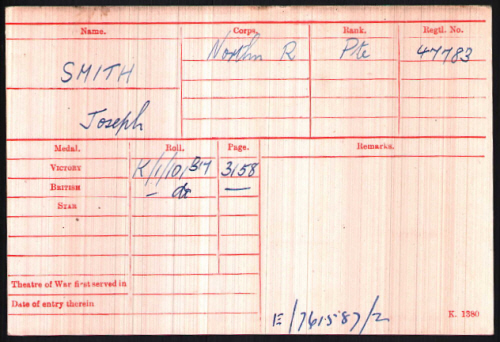 Name. Corps. Rank. Regtl. No.
SMITH Northn R Pte 47783
Joseph
Medal. Roll. Page. Remarks.
VICTORY K/1/101 B17 3158
BRITISH — do —
STAR
Theatre of War first served in
Date of entry therein
E/761587/2 K. 1380